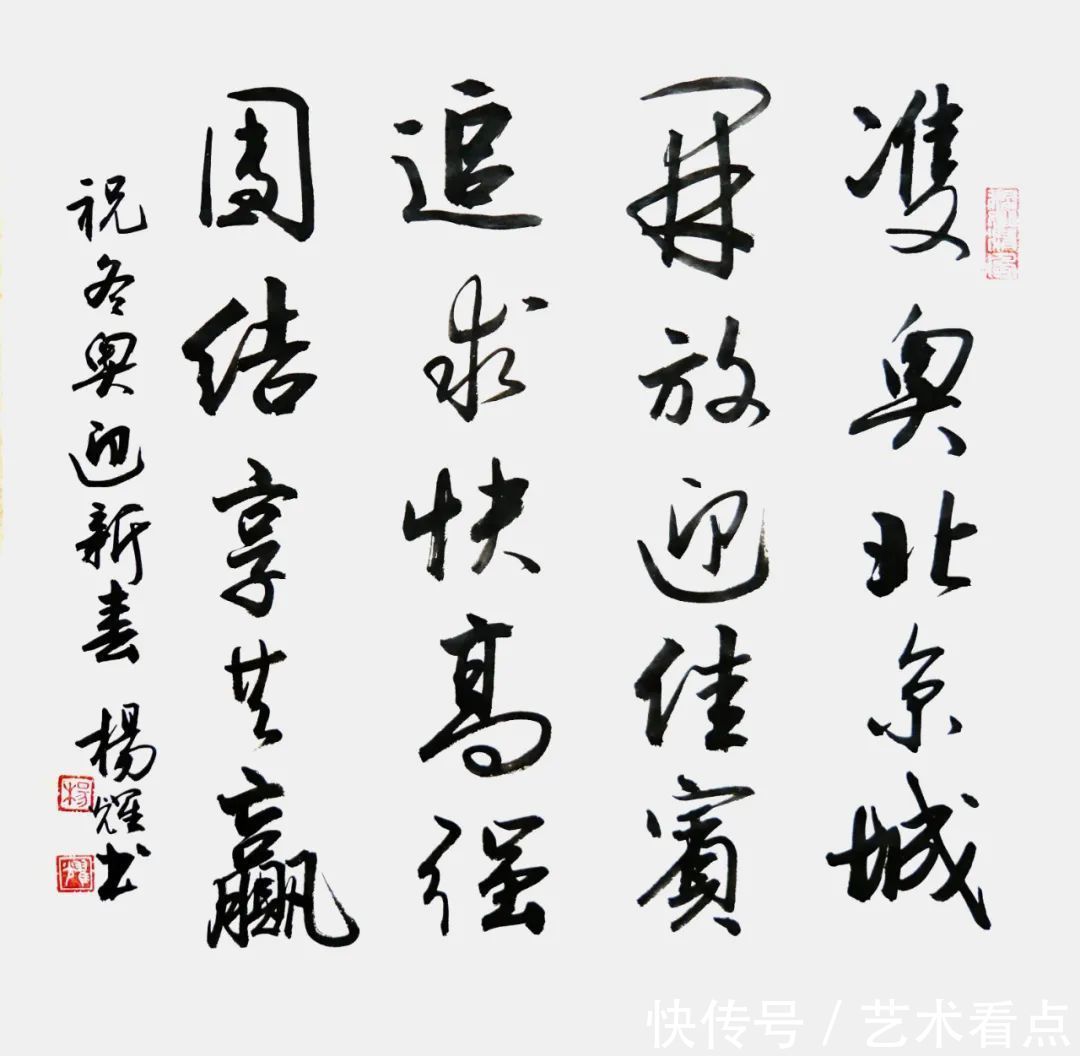 雙奥北京城
開放迎佳賓
追求快高强
團結享共贏
祝冬奥迎新春 楊耀书
快传号 / 艺术看点